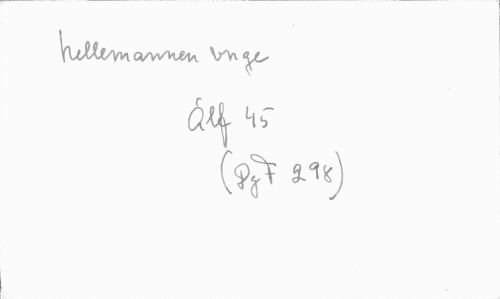 hellemannen unge
Álf 45
(DgF 298)